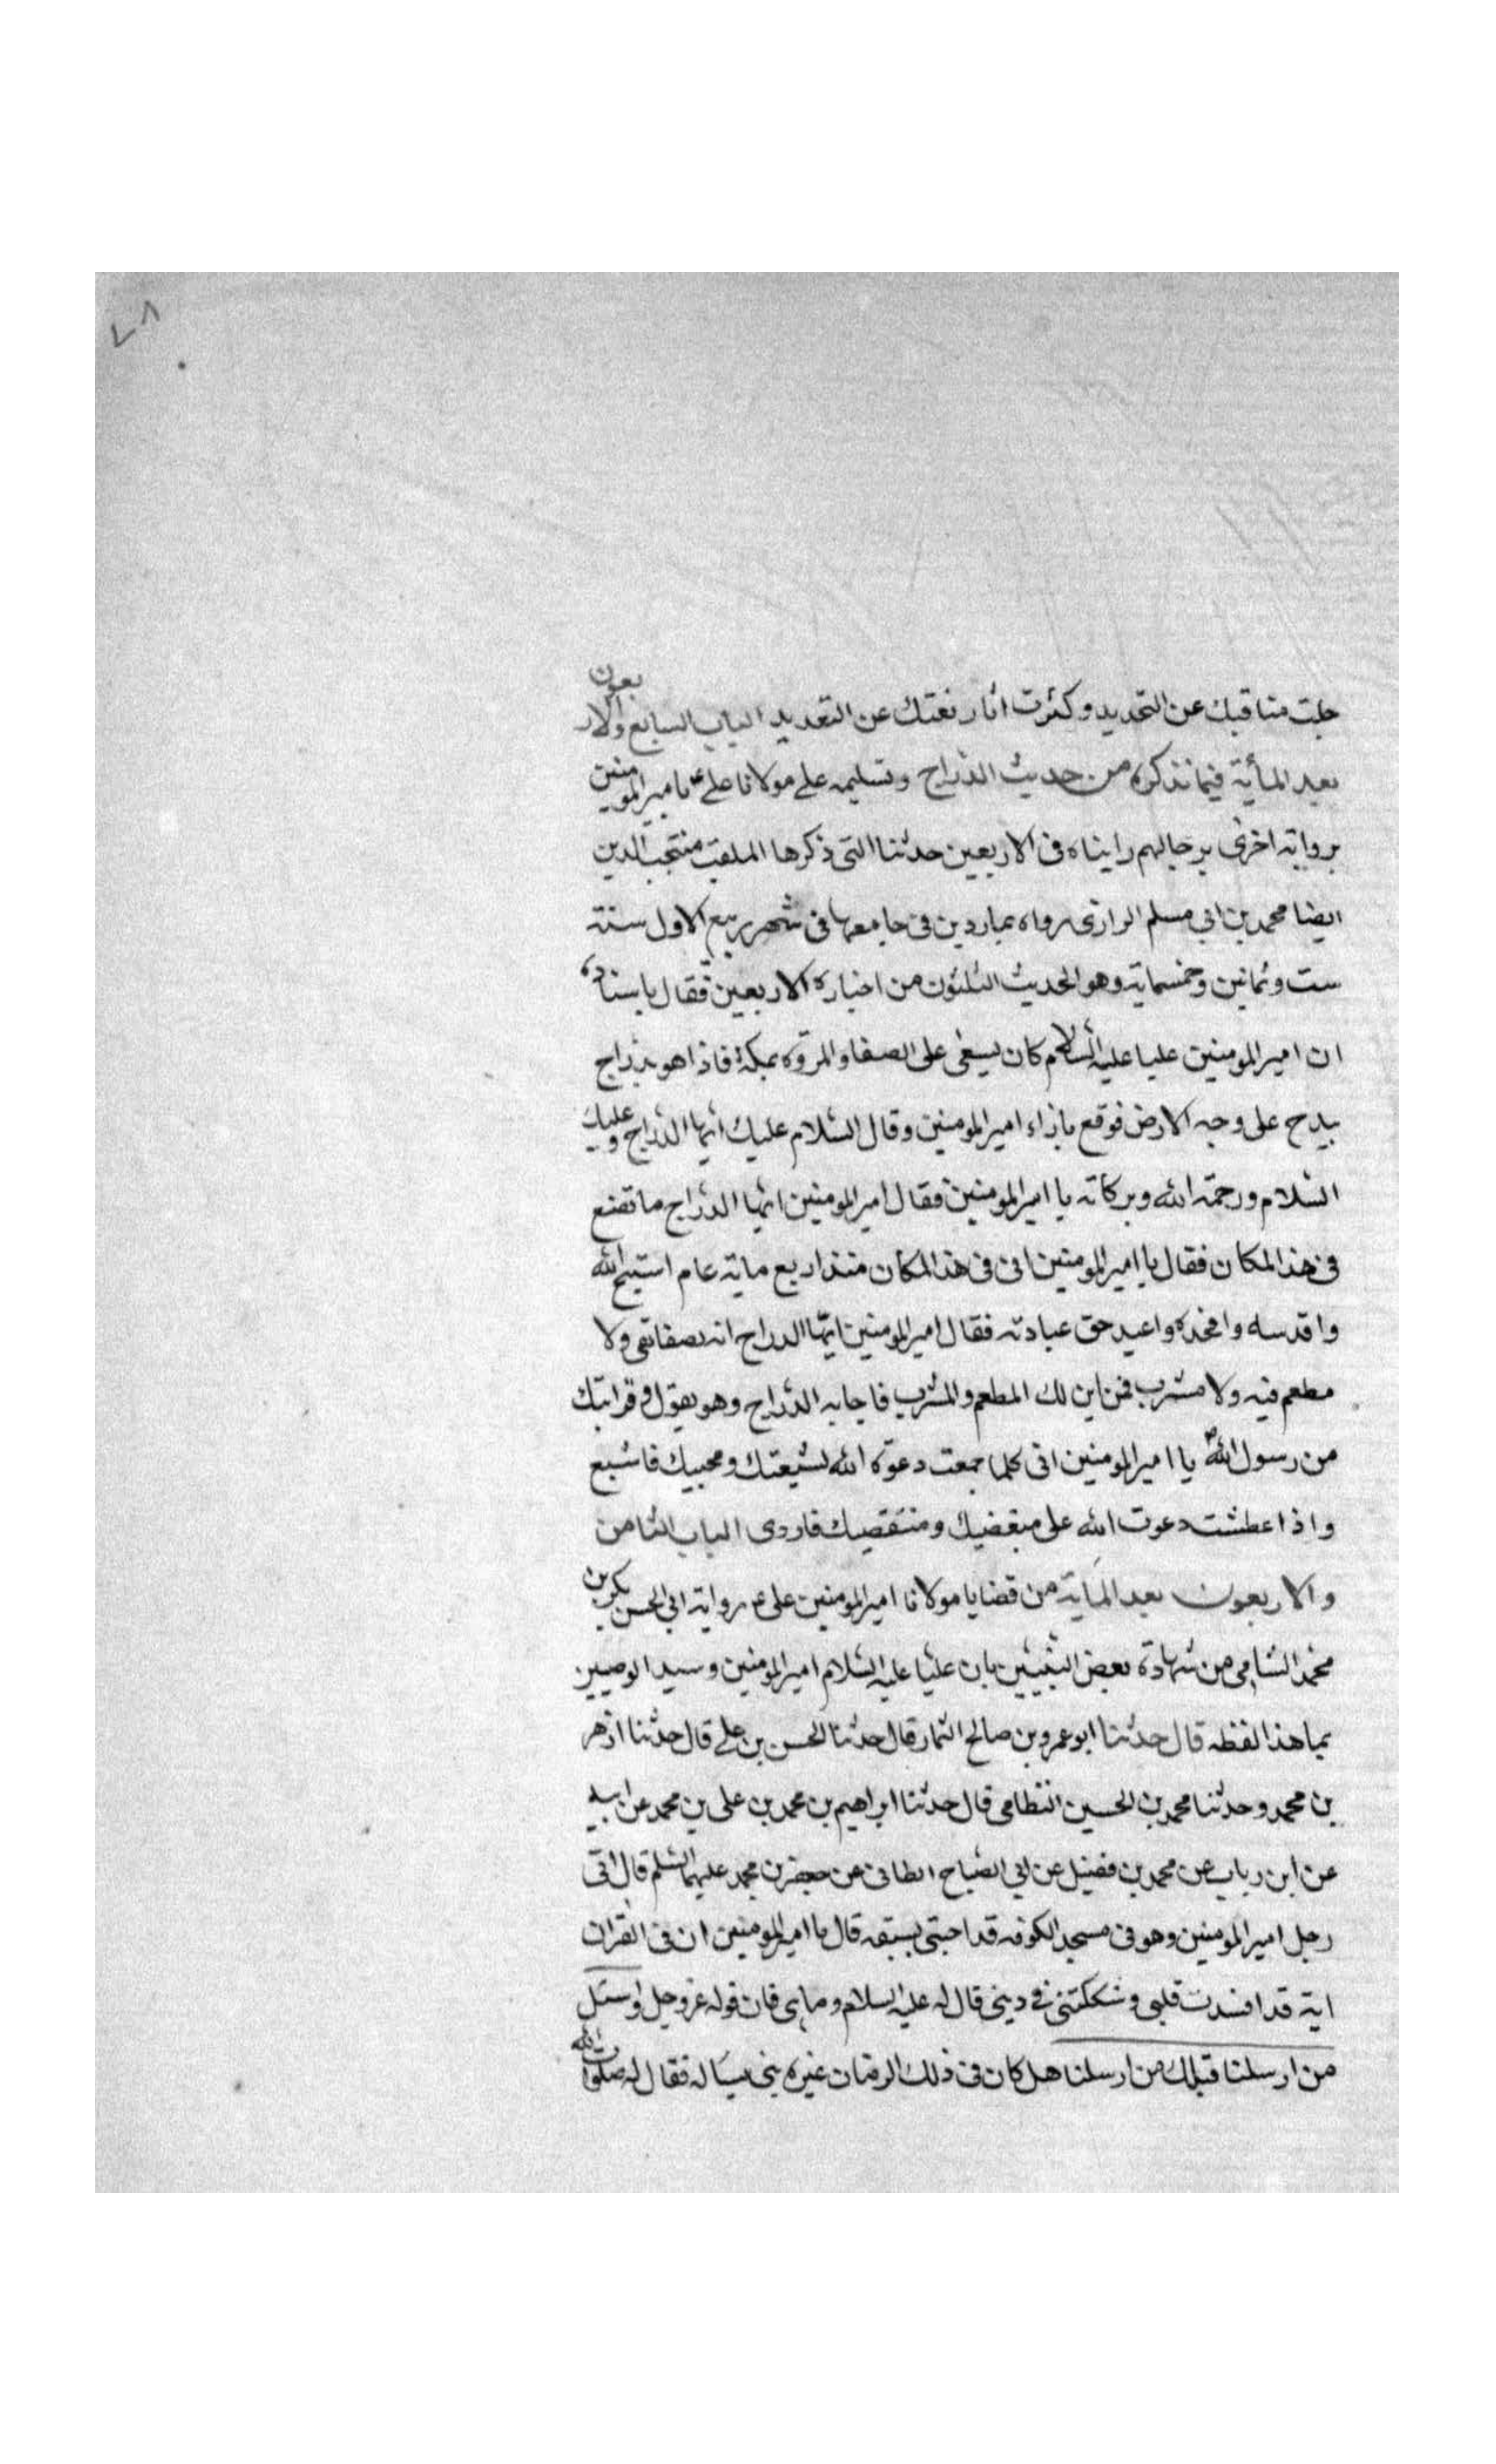 ٧٨
جلت مناقبك عن التحديد وكثرت اثار نعتك عن التعديد الباب السابع والاربعون
بعد المأية فيما نذكره من حديث الدّراج وتسليمه على مولانا علي ع باميرالمومنين
برواية اخرى برجالهم رايناه فى الاربعين حدثنا التى ذكرها الملقب منتجب الدين
ايضا محمد بن ابي مسلم الرازى رواه بماردين فى جامعها فى شهر ربيع الاول سنة
ست وثمانين وخمسماية وهو الحديث الثلثون من اخباره الاربعين فقال باسناده
ان اميرالمومنين عليا عليه السلام كان يسعى على الصفا والمروة بمكة فاذا هو بدراج
يدرج على وجه الارض فوقع بازاء اميرالمومنين وقال السلام عليك ايها الدراج وعليك
السلام ورحمة الله وبركاته يا اميرالمومنين فقال اميرالمومنين ايها الدراج ما تصنع
فى هذا المكان فقال يا اميرالمومنين انى فى هذا المكان منذ اربع ماية عام اسبح الله
واقدسه وامجده واعبد حق عبادته فقال اميرالمومنين ايها الدراج انه لصفا نقى ولا
مطعم فيه ولا مشرب فمن اين لك المطعم والمشرب فاجابه الدراج وهو يقول وقرابتك
من رسول الله ص يا اميرالمومنين انى كلما جعت دعوة الله لشيعتك ومحبيك فاشبع
واذا عطشت دعوت الله على مبغضيك ومنتقصيك فاروى الباب الثامن
والاربعون بعد المأية من قضايا مولانا اميرالمومنين على ع رواية ابي الحسن بكر بن
محمد الشامى من شهادة بعض النبيين بان عليا عليه السلام اميرالمومنين وسيد الوصيين
بما هذا لفظه قال حدثنا ابو عمرو بن صالح التمار قال حدثنا الحسن بن علي قال حدثنا ازهر
بن محمد وحدثنا محمد بن الحسين النظامى قال حدثنا ابراهيم بن محمد بن على بن محمد عن ابيه
عن ابن رياب عن محمد بن فضيل عن ابي الصباح الطانى عن جعفر بن محمد عليهما السلم قال اتى
رجل اميرالمومنين وهو فى مسجد الكوفه قد احتبى بسيفه قال يا اميرالمومنين ان فى القران
اية قد افسدت قلبى وشككتنى في دينى قال له عليه السلام وما هى قال قوله عز وجل واسئل
من ارسلنا قبلك من ارسلنا هل كان فى ذلك الزمان غيره نبى يسأله فقال له صلوات الله